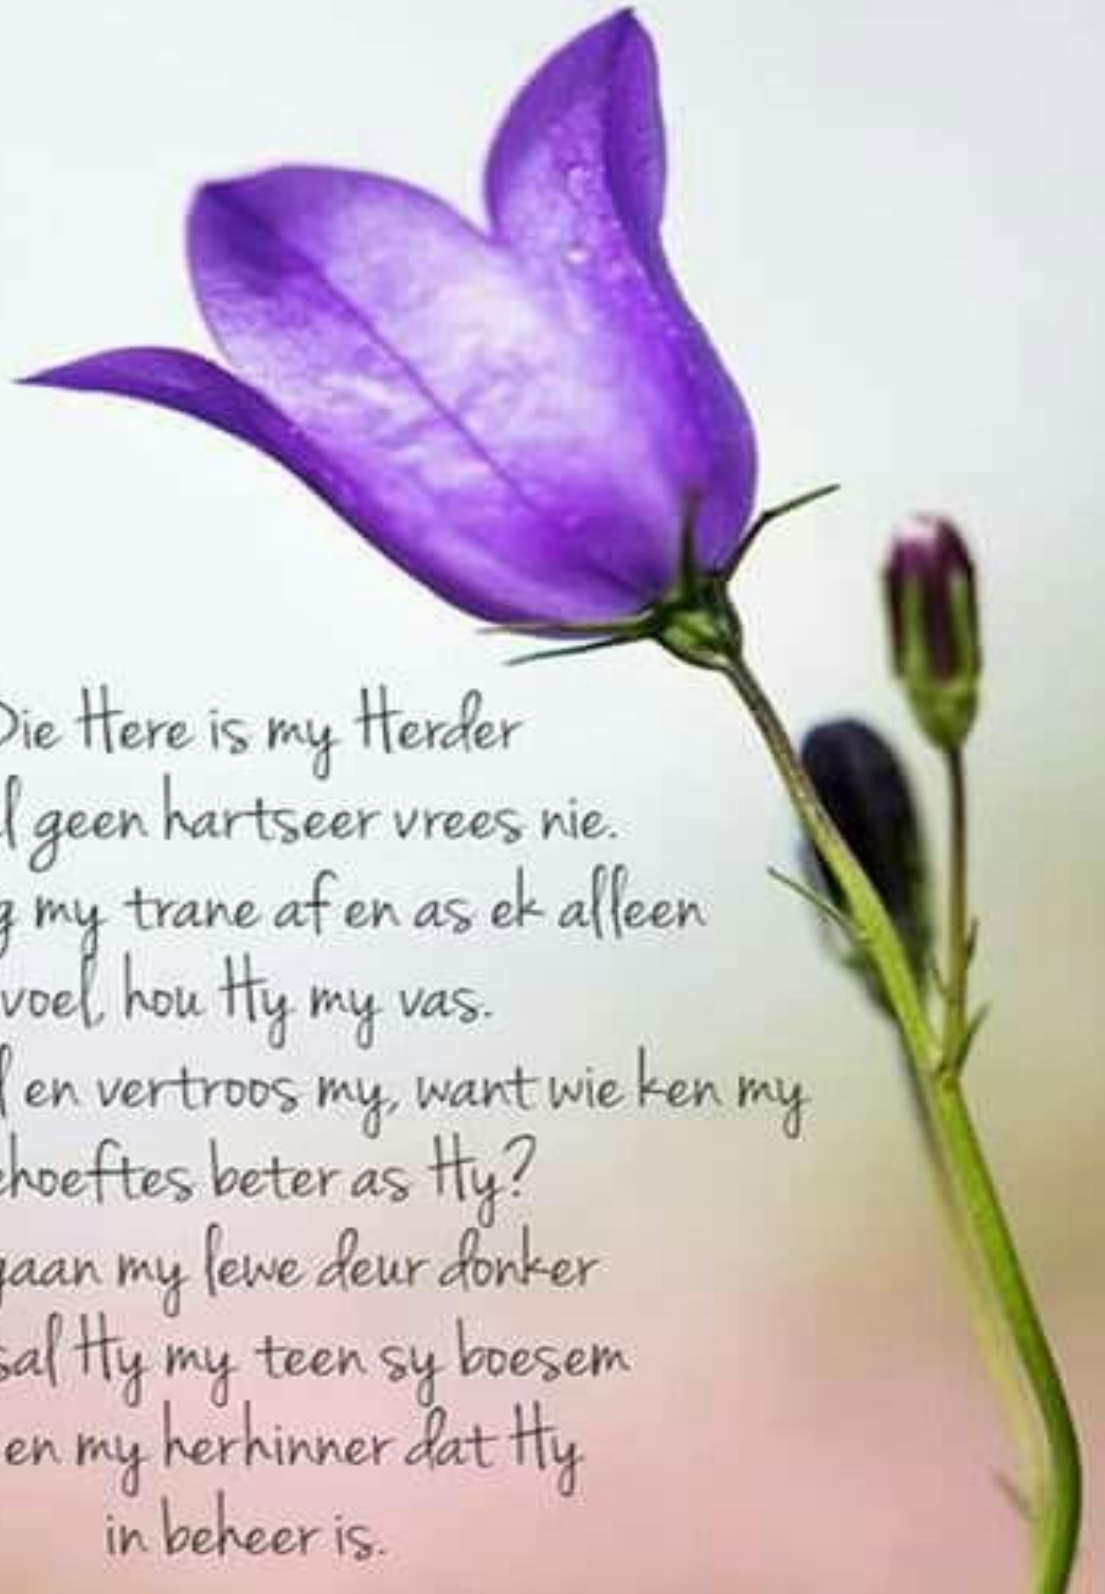 Die Here is my Herder
geen hartseer vrees nie.
my trane af en as ek alleen
voel, hou Hy my vas.
en vertroos my, want wie ken my
beter as Hy?
gaan my lewe deur donker
sal Hy my teen sy boesem
en my herhinner dat Hy
in beheer is.